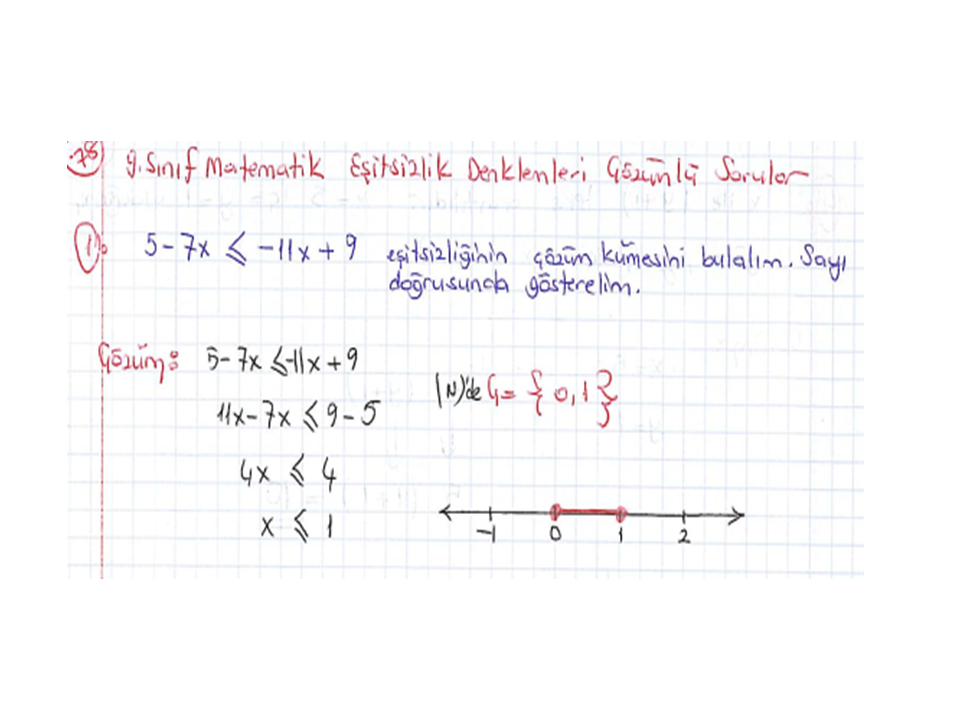 78 9. Sınıf Matematik Eşitsizlik Denklemleri Çözümlü Sorular
1) 5-7x ≤ -11x+9 eşitsizliğinin çözüm kümesini bulalım. Sayı
doğrusunda gösterelim.
Çözüm: 5-7x ≤ -11x+9
11x-7x ≤ 9-5
4x ≤ 4
x ≤ 1
(N)'de Ç= { 0, 1 }
-1 0 1 2